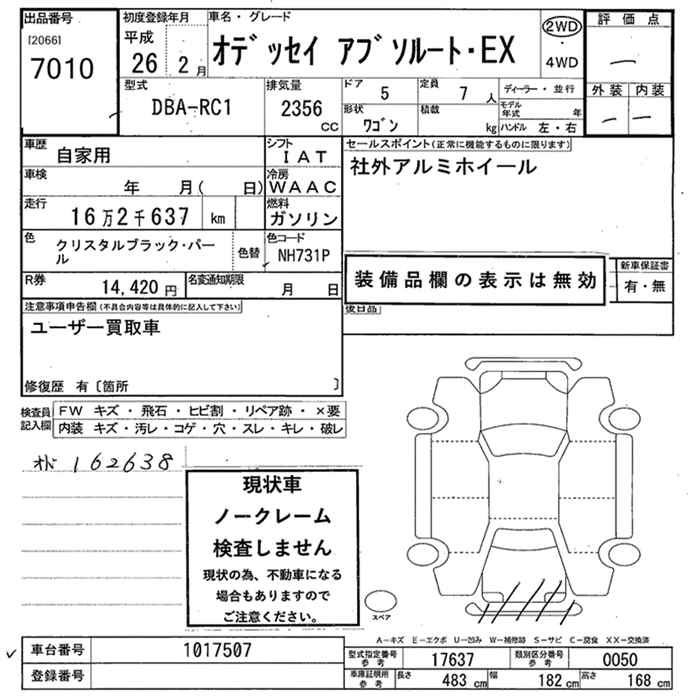 出品番号
[2066]
7010
初度登録年月
平成
26 2月
車名・グレード
オデッセイ アブソルート・EX
2WD
・
4WD
評価点
—
外装 内装
— —
型式
DBA-RC1
排気量
2356
cc
ドア 5
定員 7人
形状 ワゴン
積載 kg
ディーラー・並行
モデル年式 年
ハンドル 左・右
車歴
自家用
シフト
IAT
車検
年 月( 日)
冷房
WAAC
走行
16万2千637 km
燃料
ガソリン
色
クリスタルブラック・パール
色替
色コード
NH731P
R券
14,420円
名変通知期限
月 日
セールスポイント(正常に機能するものに限ります)
社外アルミホイール
装備品欄の表示は無効
新車保証書
有・無
後日品
注意事項申告欄(不具合内容等は具体的に記入して下さい)
ユーザー買取車
修復歴 有〔箇所 〕
検査員記入欄
FW キズ・飛石・ヒビ割・リペア跡・×要
内装 キズ・汚レ・コゲ・穴・スレ・キレ・破レ
162638
現状車
ノークレーム
検査しません
現状の為、不動車になる
場合もありますので
ご注意ください。
スペア
A-キズ E-エクボ U-凹み W-補修跡 S-サビ C-腐食 XX-交換済
車台番号
1017507
登録番号
型式指定番号
参考
17637
類別区分番号
参考
0050
車庫証明所
参考
長さ 483 cm
幅 182 cm
高さ 168 cm